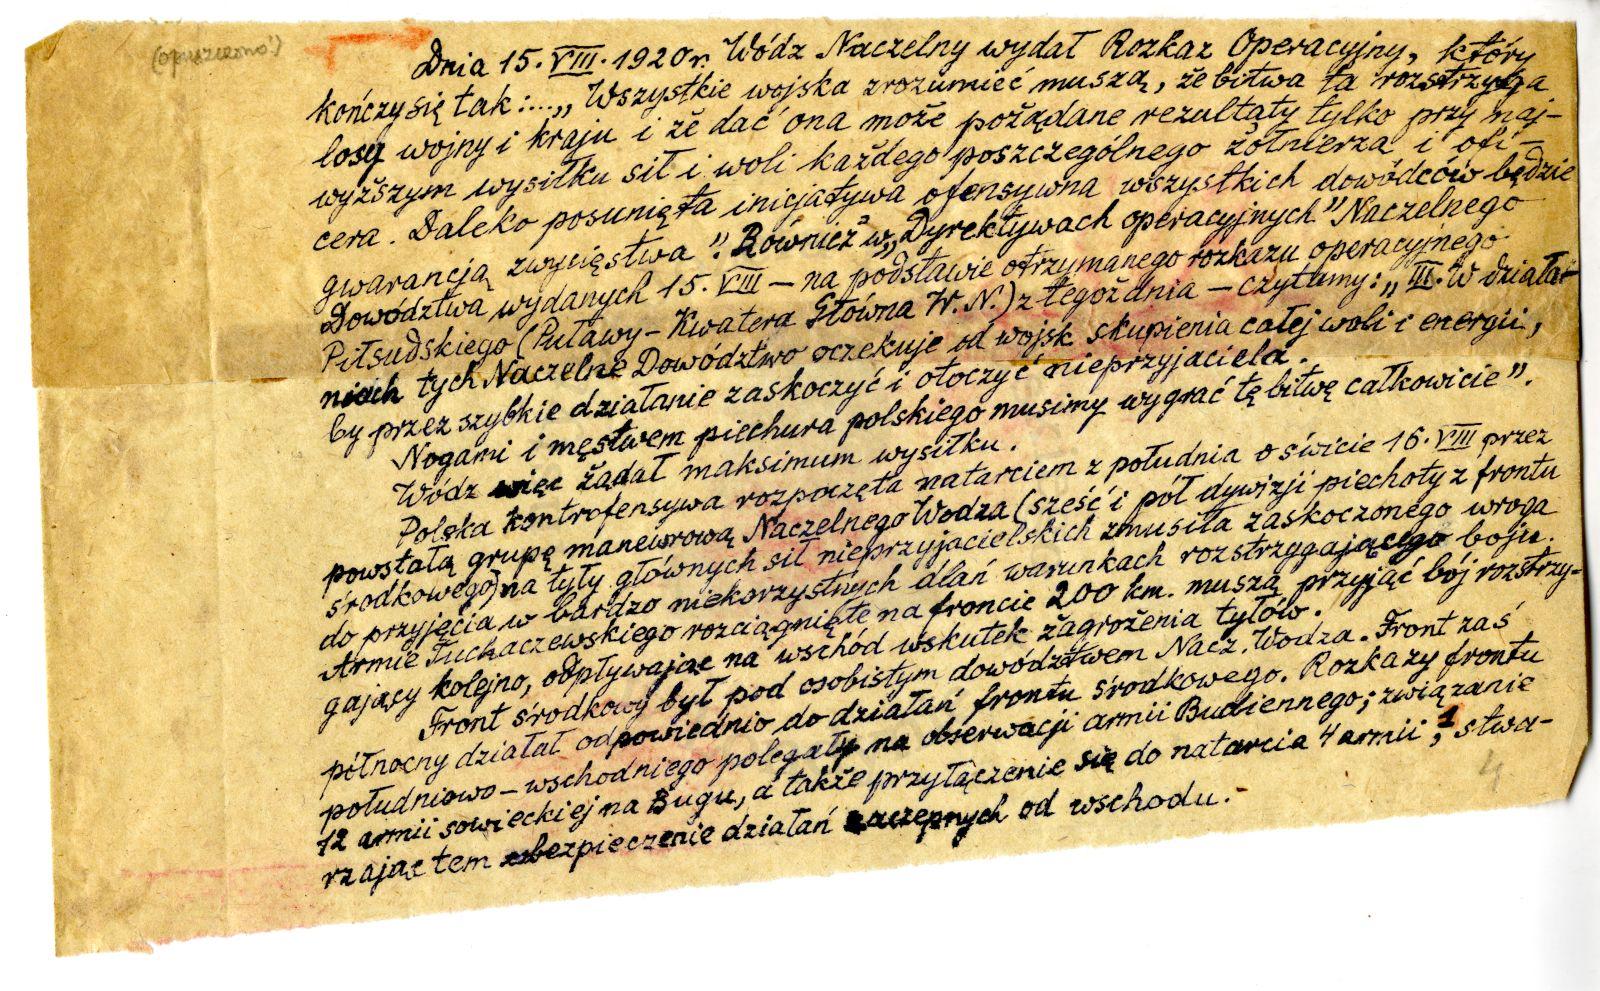 (opuszczono!)
Dnia 15. VIII. 1920 r. Wódz Naczelny wydał Rozkaz Operacyjny, który
kończy się tak: ...„Wszystkie wojska zrozumieć muszą, że bitwa ta rozstrzyga
losy wojny i kraju i że dać ona może pożądane rezultaty tylko przy naj-
wyższym wysiłku sił i woli każdego poszczególnego żołnierza i ofi-
cera. Daleko posunięta inicjatywa ofensywna wszystkich dowódców będzie
gwarancją zwycięstwa". Również w „Dyrektywach operacyjnych" Naczelnego
Dowództwa wydanych 15. VIII – na podstawie otrzymanego rozkazu operacyjnego
Piłsudskiego (Puławy – Kwatera Główna W. N.) z tegoż dnia – czytamy: „III. W działa-
niach tych Naczelne Dowództwo oczekuje od wojsk skupienia całej woli i energii,
by przez szybkie działanie zaskoczyć i otoczyć nieprzyjaciela.
Nogami i męstwem piechura polskiego musimy wygrać tę bitwę całkowicie".
Wódz więc żądał maksimum wysiłku.
Polska kontrofensywa rozpoczęta natarciem z południa o świcie 16. VIII przez
powstałą grupę manewrową Naczelnego Wodza (sześć i pół dywizji piechoty z frontu
środkowego) na tyły głównych sił nieprzyjacielskich zmusiła zaskoczonego wroga
do przyjęcia w bardzo niekorzystnych dlań warunkach rozstrzygającego boju.
Armie Tuchaczewskiego rozciągnięte na froncie 200 km. muszą przyjąć bój rozstrzy-
gający kolejno, odpływając na wschód wskutek zagrożenia tyłów.
Front środkowy był pod osobistym dowództwem Nacz. Wodza. Front zaś
północny działał odpowiednio do działań frontu środkowego. Rozkazy frontu
południowo – wschodniego polegały na obserwacji armii Budiennego; związanie
12 armii sowieckiej na Bugu, a także przyłączenie się do natarcia 4 armii, stwa-
rzając tem zabezpieczenie działań zaczepnych od wschodu.
4